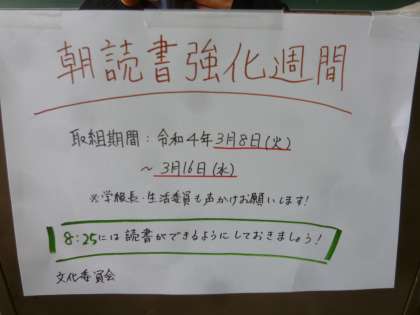 朝読書強化週間
取組期間：令和4年3月8日(火)
～3月16日(水)
※学級長・生活委員も声かけお願いします!
8:25には読書ができるようにしておきましょう!
文化委員会